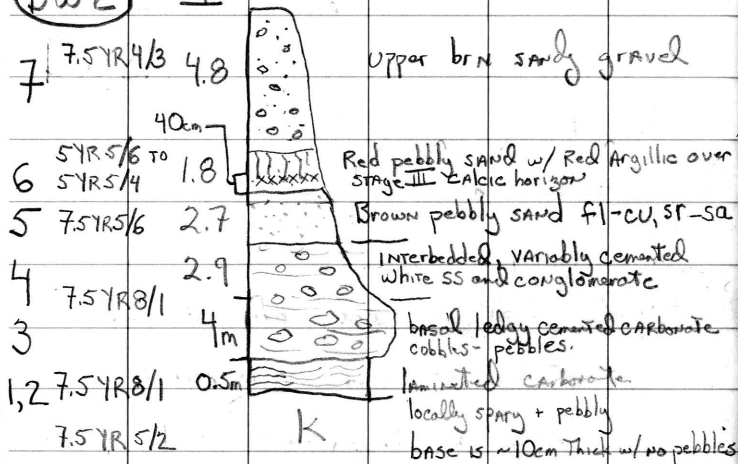 7 7.5YR 4/3 4.8 Upper brn sandy gravel
40cm
6 5YR 5/6 TO 5YR 5/4 1.8 Red pebbly sand w/ Red Argillic over
STAGE III Calcic horizon
5 7.5YR5/6 2.7 Brown pebbly sand fl-cu, sr-sa
4 2.9 Interbedded, variably cemented
white SS and conglomerate
7.5YR 8/1
3 4m basal ledgy cemented carbonate
cobbles - pebbles.
1,2 7.5YR 8/1 0.5m laminated carbonate
locally spary + pebbly
7.5YR 5/2 K base is ~10cm Thick w/ no pebbles